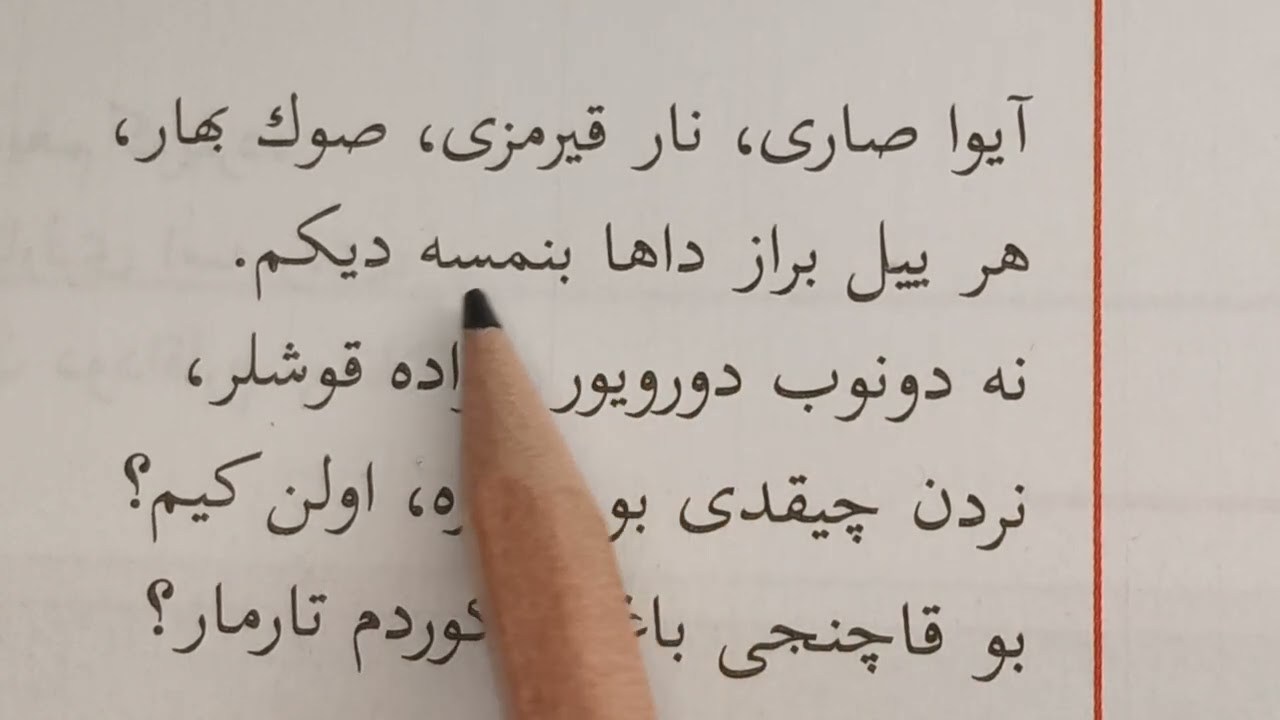 آیوا صاری، نار قیرمزی، صوك بهار،
هر ییل براز داها بنمسه دیکم.
نه دونوب دورویور قوشلر،
نردن چیقدی بو اولن کیم؟
بو قاچنجی تارمار؟